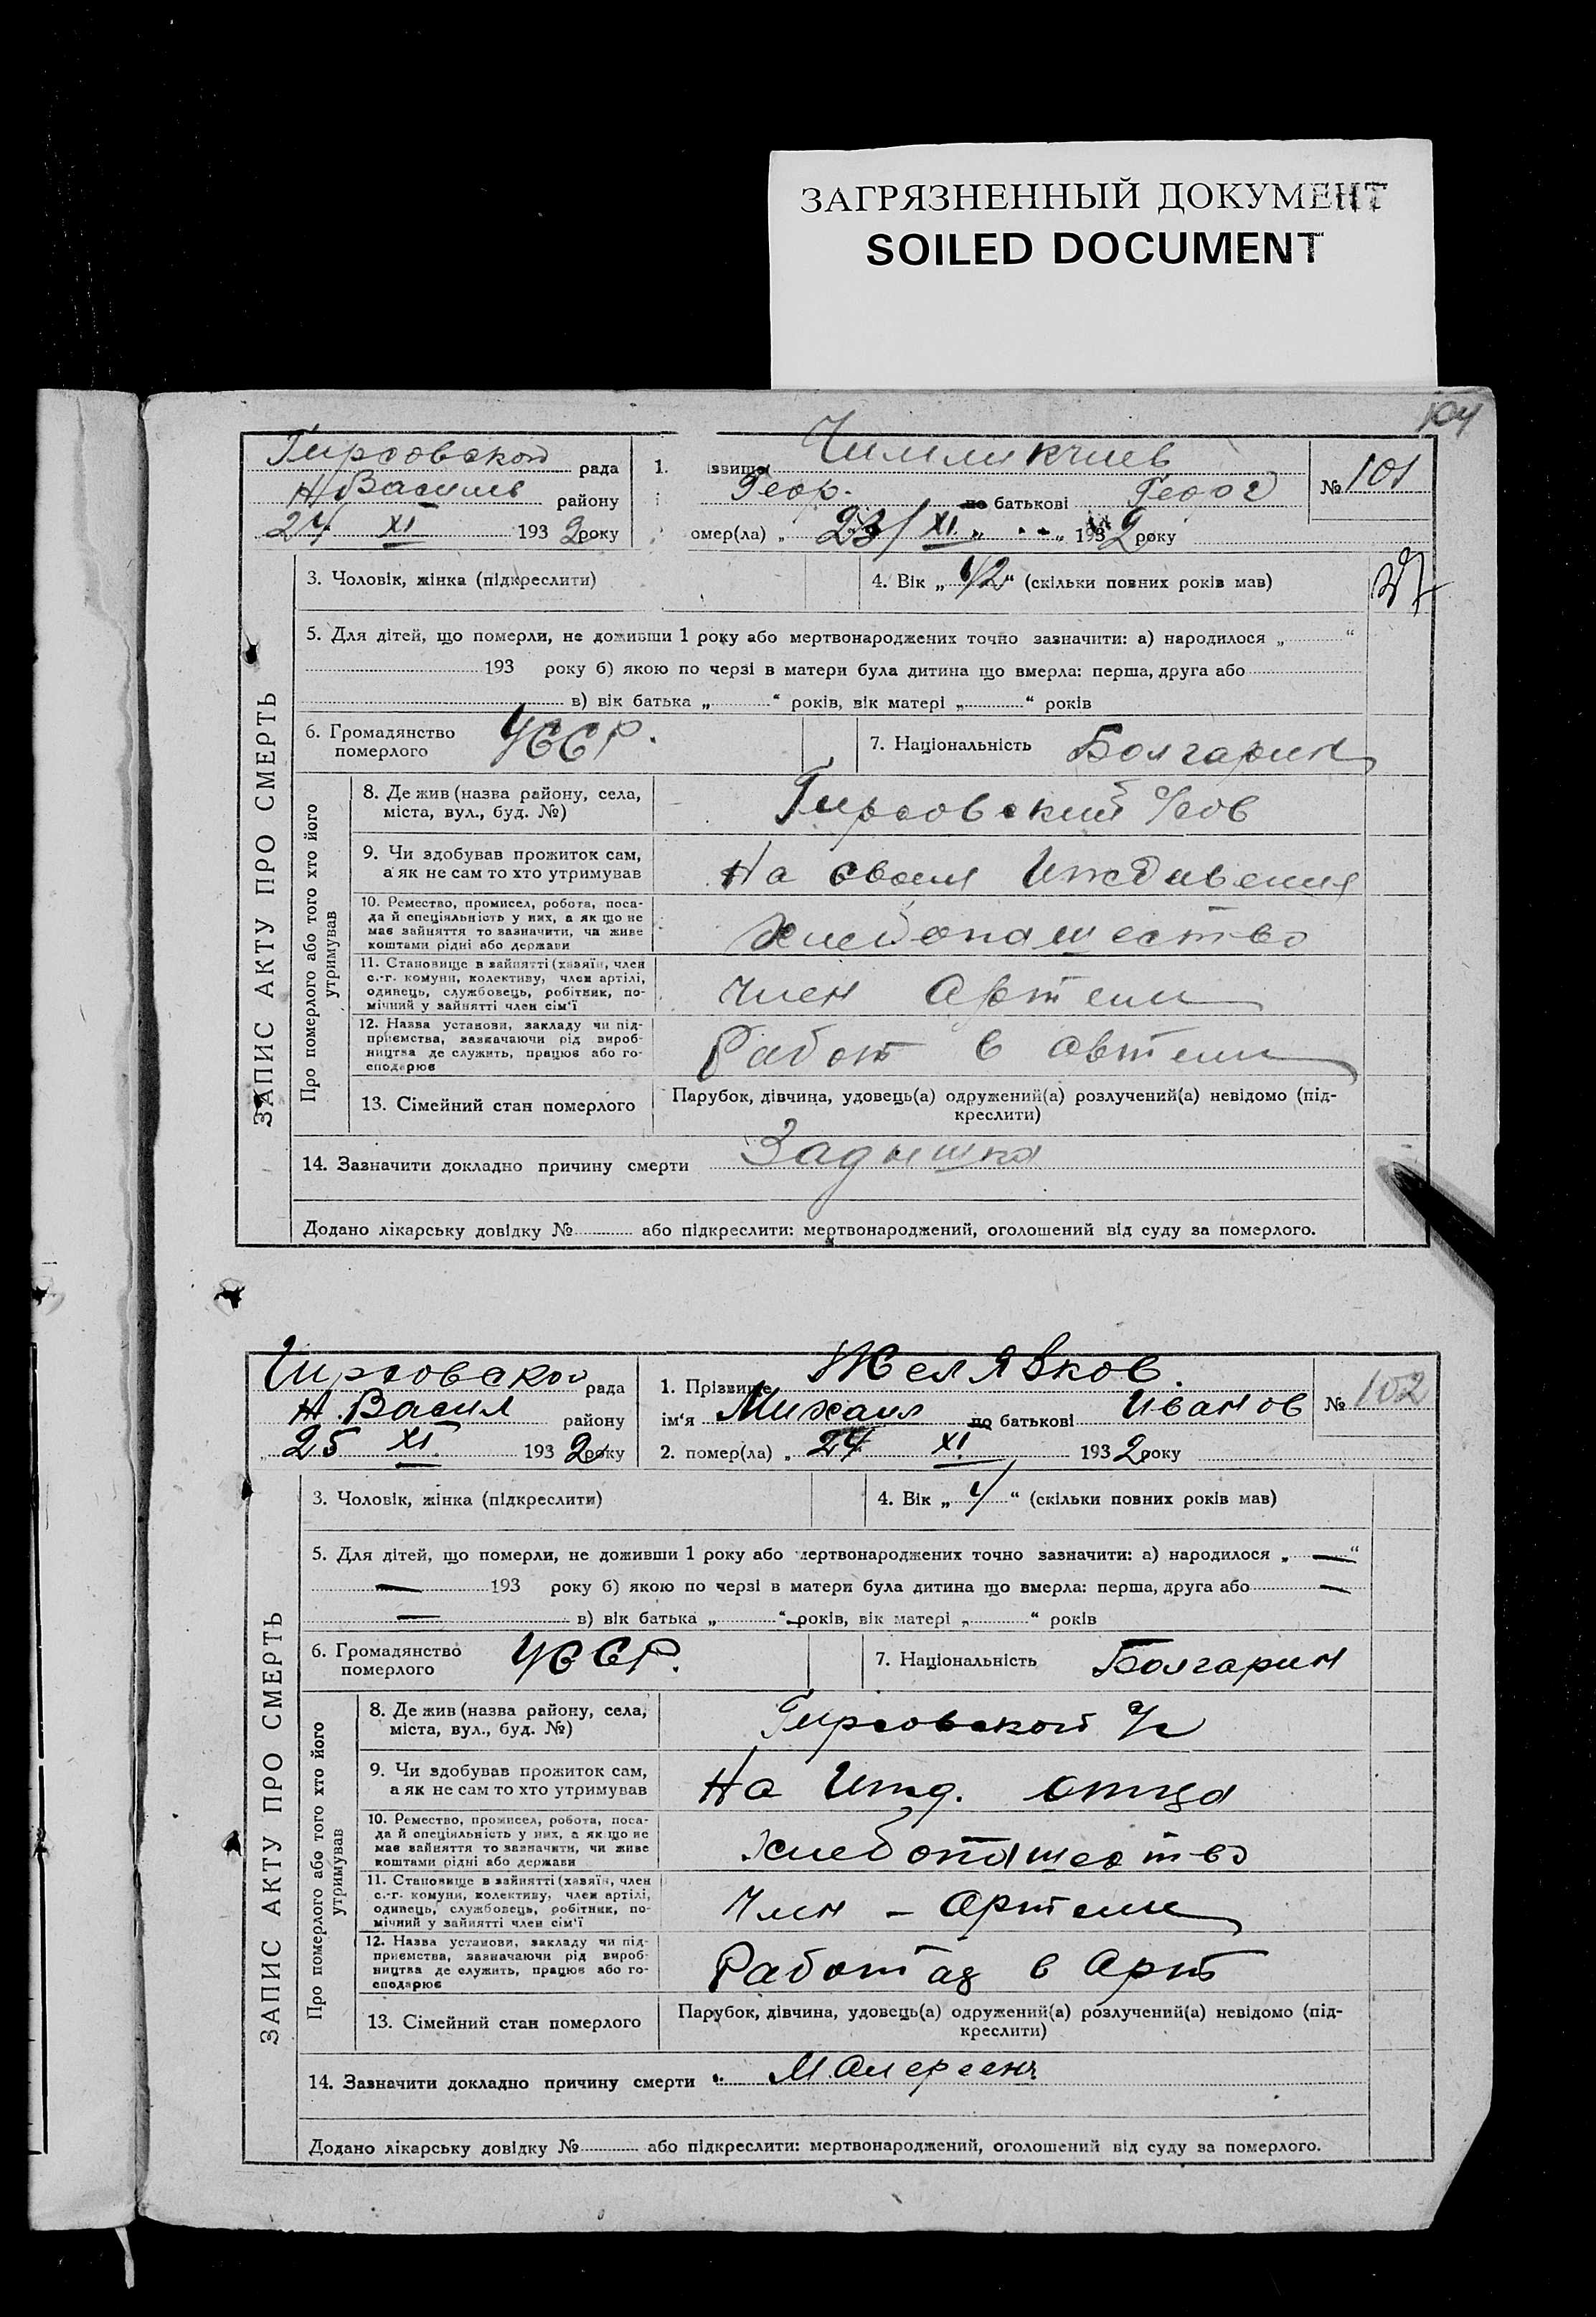 ЗАГРЯЗНЕННЫЙ ДОКУМЕНТ
SOILED DOCUMENT
104
ЗАПИС АКТУ ПРО СМЕРТЬ
Гирсовской рада
Н Василь району
24 XI 1932 року
1. ізвище Чимликчиев
Геор. по батькові Георг
омер(ла) „ 23/XI „ „ 1932 року
№ 101
3. Чоловік, жінка (підкреслити)
4. Вік „ “ (скільки повних років мав)
5. Для дітей, що померли, не доживши 1 року або мертвонароджених точно зазначити: а) народилося „ “
193 року б) якою по черзі в матери була дитина що вмерла: перша, друга або
в) вік батька „ “ років, вік матері „ “ років
6. Громадянство померлого УССР.
7. Національність Болгарин
Про померлого або того хто його утримував
8. Де жив (назва району, села,
міста, вул., буд. №)
Гирсовский с/сов
9. Чи здобував прожиток сам,
а як не сам то хто утримував
На своем Иждивения
10. Ремество, промисел, робота, поса-
да й спеціяльність у них, а як що не
має зайняття то зазначити, чи живе
коштами рідні або держави
Хлебопашество
11. Становище в зайнятті (хазяїн, член
с.-г. комуни, колективу, член артілі,
одинець, службовець, робітник, по-
мічний у зайнятті член сім'ї
Член Артели
12. Назва установи, закладу чи під-
приємства, зазначаючи рід вироб-
ництва де служить, працює або го-
сподарює
Работ в автели
13. Сімейний стан померлого
Парубок, дівчина, удовець(а) одружений(а) розлучений(а) невідомо (під-
креслити)
14. Зазначити докладно причину смерти Задышка
Додано лікарську довідку № або підкреслити: мертвонароджений, оголошений від суду за померлого.
ЗАПИС АКТУ ПРО СМЕРТЬ
Гирсовской рада
Н. Васил району
25 XI 1932 року
1. Прізвище Желявков.
ім'я Михаил по батькові Иванов
2. помер(ла) „ 24 XI 1932 року
№ 102
3. Чоловік, жінка (підкреслити)
4. Вік „ 1/ “ (скільки повних років мав)
5. Для дітей, що померли, не доживши 1 року або мертвонароджених точно зазначити: а) народилося „ — “
— 193 року б) якою по черзі в матери була дитина що вмерла: перша, друга або —
— в) вік батька „ “ років, вік матері „ “ років
6. Громадянство померлого УССР.
7. Національність Болгарин
Про померлого або того хто його утримував
8. Де жив (назва району, села,
міста, вул., буд. №)
Гирсовской с/с
9. Чи здобував прожиток сам,
а як не сам то хто утримував
На Ижд. отца
10. Ремество, промисел, робота, поса-
да й спеціяльність у них, а як що не
має зайняття то зазначити, чи живе
коштами рідні або держави
Хлебопашество
11. Становище в зайнятті (хазяїн, член
с.-г. комуни, колективу, член артілі,
одинець, службовець, робітник, по-
мічний у зайнятті член сім'ї
Член - Артели
12. Назва установи, закладу чи під-
приємства, зазначаючи рід вироб-
ництва де служить, працює або го-
сподарює
Работ в Арт
13. Сімейний стан померлого
Парубок, дівчина, удовець(а) одружений(а) розлучений(а) невідомо (під-
креслити)
14. Зазначити докладно причину смерти
Додано лікарську довідку № або підкреслити: мертвонароджений, оголошений від суду за померлого.